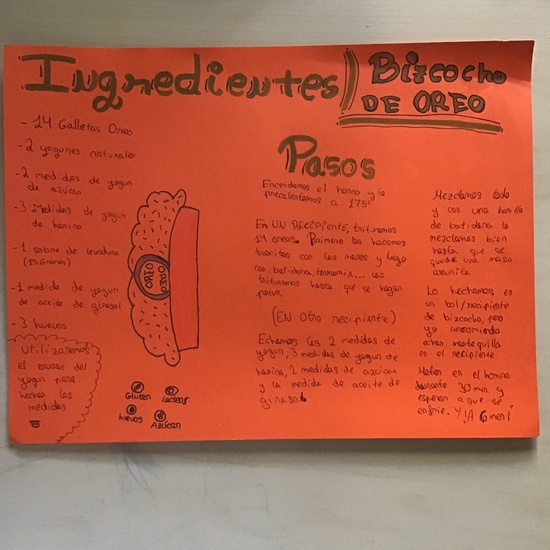 Ingredientes
Bizcocho
DE OREO
- 14 Galletas Oreo
- 2 yogures naturales
- 2 medidas de yogur
de azúcar
- 3 Medidas de yogur
de harina
- 1 sobre de levadura
(15 Gramos)
- 1 medida de yogur
de aceite de girasol
- 3 huevos
Utilizaremos
el envase del
yogur para
hechar las
medidas
OREO
OREO
Gluten
lacteos
huevos
Azúcar
Pasos
Encendemos el horno y lo
precalentamos a 175º
En UN RECIPIENTE, trituramos
14 oreos. Primero las hacemos
trocitos con las manos y luego
con batidora, termomix... las
trituramos hasta que se hagan
polvo.
(EN Otro recipiente)
Echamos las 2 medidas de
yogur, 3 medidas de yogur de
harina, 2 medidas de azúcar
y la medida de aceite de
girasol.
Mezclamos todo
y con una varilla
de batidora lo
mezclamos bien
hasta que se
quede una masa
Lo hechamos en
un bol/recipiente
de bizcocho, pero
yo recomiendo
echar mantequilla
en el recipiente.
Meter en el horno
durante 30 min y
esperar a que se
enfríe. Y ¡A Comer!